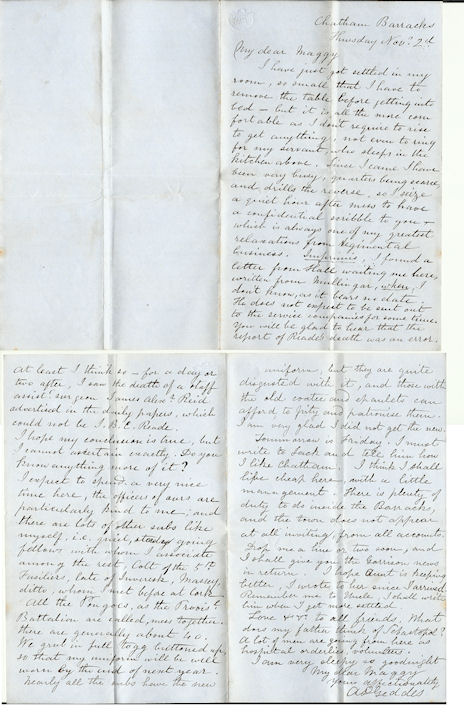 Chatham Barracks
Thursday Nov. 2d
My dear Maggy
I have just got settled in my
room, so small that I have to
remove the table before getting into
bed - but it is all the more com
fortable as I don't require to rise
to get anything, not even to ring
for my servant, who sleeps in the
kitchen above. Since I came I have
been very busy, quarters being scarce
and drills the reverse, so I seize
a quiet hour after mess to have
a confidential scribble to you &
which is always one of my greatest
relaxations from Regimental
business. Imprimis, I found a
letter from Hall waiting me here,
written from Mullingar, when, I
don't know, as it bears no date.
He does not expect to be sent out
to the service companies for some time.
You will be glad to hear that the
report of Reade's death was an error,
at least I think so - for a day or
two after, I saw the death of a staff
assist. surgeon James Alexr. Reid
advertised in the daily papers, which
could not be J. B. C. Reade.
I hope my conclusion is true, but
I cannot ascertain exactly. Do you
know anything more of it?
I expect to spend a very nice
time here, the officers of ours are
particularly kind to me; and
there are lots of other subs like
myself, i.e. quiet, steady going
fellows with whom I associate
among the rest, Colt of the 5th
Fusiliers, late of Inveresk, Massey,
ditto, whom I met before at Cork.
All the Pongoes, as the Provisl
Battalion are called, mess together.
there are generally about 40.
We are in full togg buttoned up
so that my uniform will be well
worn by the end of next year.
Nearly all the subs have the new
uniform, but they are quite
disgusted with it, and those with
the old coatee and epaulets can
afford to pity and patronise them.
I am very glad I did not get the new.
Tommorrow is Friday. I must
write to Jack and tell him how
I like Chatham. I think I shall
live cheap here, with a little
management. There is plenty of
duty to do inside the Barracks,
and the town does not appear
at all inviting, from all accounts.
Drop me a line or two soon, and
I shall give you the Garrison news
in return. I hope Aunt is keeping
better. I wrote to her since I arrived
Remember me to Uncle, I shall write
him when I get more settled.
Love &c to all friends. What
does my father think of Sebastopol?
A lot of men are going from here as
hospital orderlies, volunteers.
I am very sleepy so goodnight
My dear Maggy
Yours affectionately
A D Geddes